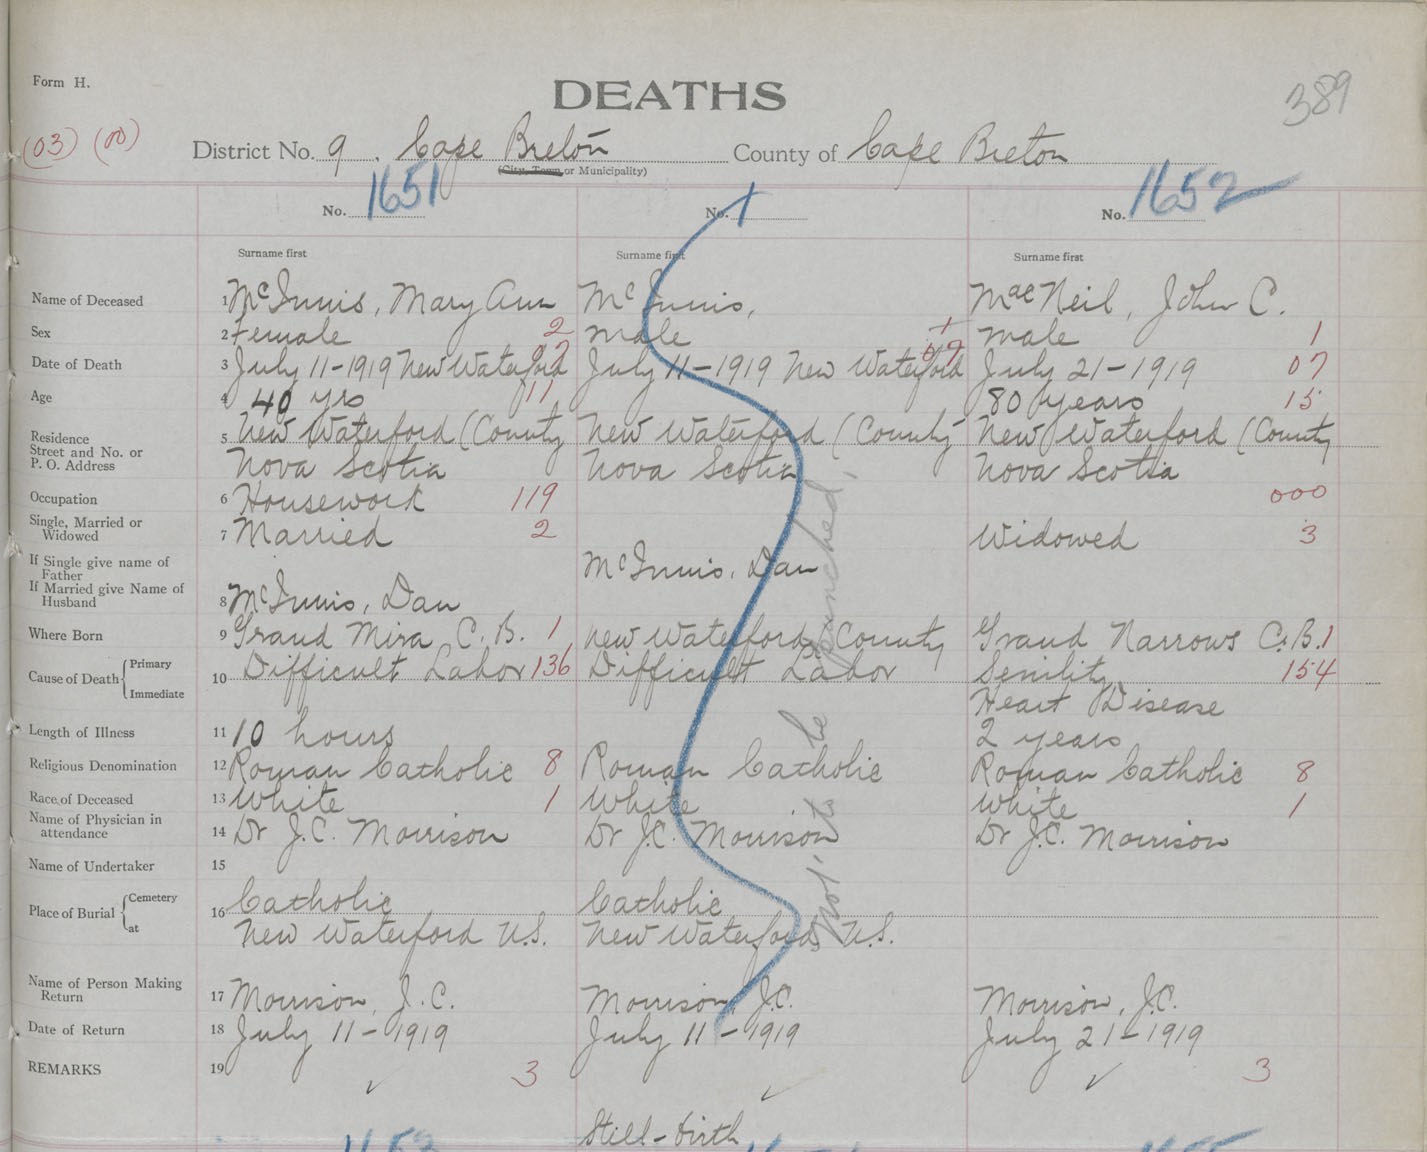 Form H.
DEATHS
389
(03) (00)
District No. 9. Cape Breton County of Cape Breton
(City, Town or Municipality)
No. 1651
No. 1
No. 1652
Surname first
Surname first
Surname first
Name of Deceased 1 McInnis, Mary Ann McInnis, MacNeil, John C.
Sex 2 Female 2 male 1 male 1
Date of Death 3 July 11-1919 New Waterford 07 July 11-1919 New Waterford 07 July 21-1919 07
Age 4 40 yrs 11 80 years 15
Residence
Street and No. or
P. O. Address
5 New Waterford (County New Waterford (County New Waterford (County
Nova Scotia Nova Scotia Nova Scotia
Occupation 6 Housework 119 000
Single, Married or
Widowed
7 Married 2 Widowed 3
If Single give name of
Father
McInnis, Dan
If Married give Name of
Husband
8 McInnis, Dan
Where Born 9 Grand Mira C.B. 1 New Waterford, County Grand Narrows C.B. 1
Cause of Death { Primary
Immediate
10 Difficult Labor 136 Difficult Labor Senility 154
Heart Disease
Length of Illness 11 10 hours 2 years
Religious Denomination 12 Roman Catholic 8 Roman Catholic Roman Catholic 8
Race of Deceased 13 White 1 White White 1
Name of Physician in
attendance
14 Dr J.C. Morrison Dr J.C. Morrison Dr J.C. Morrison
Name of Undertaker 15
Place of Burial { Cemetery
at
16 Catholic Catholic
New Waterford N.S. New Waterford N.S.
Name of Person Making
Return
17 Morrison, J.C. Morrison, J.C. Morrison, J.C.
Date of Return 18 July 11-1919 July 11-1919 July 21-1919
REMARKS 19 3 3
Still-birth
Not to be punched.
1653